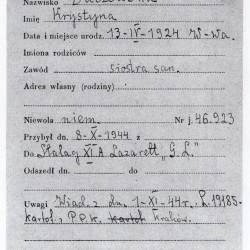 Nazwisko
Imię Krystyna
Data i miejsce urodz. 13-IV-1924 W-wa
Imiona rodziców
Zawód siostra san.
Adres własny (rodziny)
Niewola niem. Nr j. 46.923
Przybył dn. 8-X-1944 r.
Do Stalag XI A Lazarett „G.L."
Odszedł dn. do
Uwagi Wiad. z dn. 1-XI-44 r. L. 19185.
kartot. P.P.K. kartot Kraków.